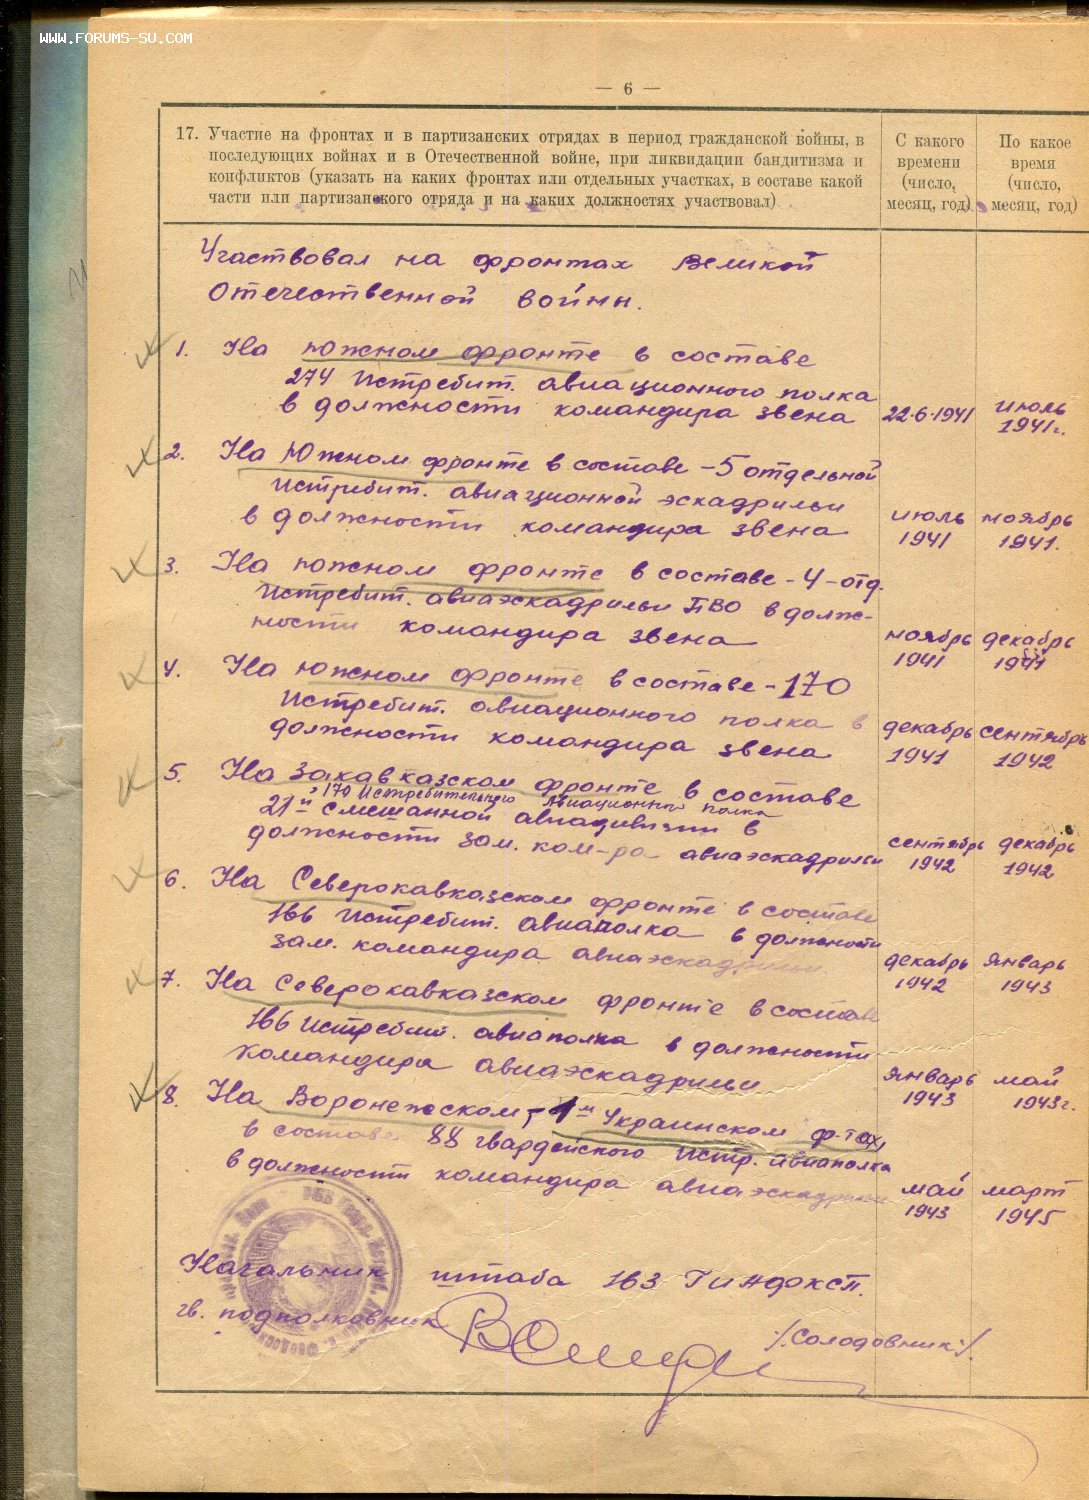 WWW.FORUMS-SU.COM
— 6 —
17. Участие на фронтах и в партизанских отрядах в период гражданской войны, в
последующих войнах и в Отечественной войне, при ликвидации бандитизма и
конфликтов (указать на каких фронтах или отдельных участках, в составе какой
части или партизанского отряда и на каких должностях участвовал)
С какого
времени
(число,
месяц, год)
По какое
время
(число,
месяц, год)
Участвовал на фронтах Великой
Отечественной войны.
1. На южном фронте в составе
274 Истребит. авиационного полка
в должности командира звена 22.6.1941 июль
1941г.
2. На Южном фронте в составе - 5 отдельной
истребит. авиационной эскадрильи
в должности командира звена июль ноябрь
1941 1941.
3. На южном фронте в составе - 4 - отд.
Истребит. авиаэскадрильи ПВО в долж-
ности командира звена ноябрь декабрь
1941 1941
4. На южном фронте в составе - 170
Истребит. авиационного полка в
должности командира звена декабрь сентябрь
1941 1942
5. На Закавказском фронте в составе
170 Истребительного Авиационного полка
21й смешанной авиадивизии в
должности зам. ком-ра авиаэскадрильи сентябрь декабрь
1942 1942
6. На Северокавказском фронте в составе
166 Истребит. авиаполка в должности
зам. командира авиаэскадрильи декабрь январь
1942 1943
7. На Северокавказском фронте в составе
166 истребит. авиаполка в должности
командира авиаэскадрильи январь май
1943 1943г.
8. На Воронежском, - 1м Украинском ф-тах,
в составе 88 гвардейского истр. авиаполка
в должности командира авиаэскадрильи май март
1943 1945
Начальник штаба 163 ГИАФКСП.
гв. подполковник /Солодовник/.